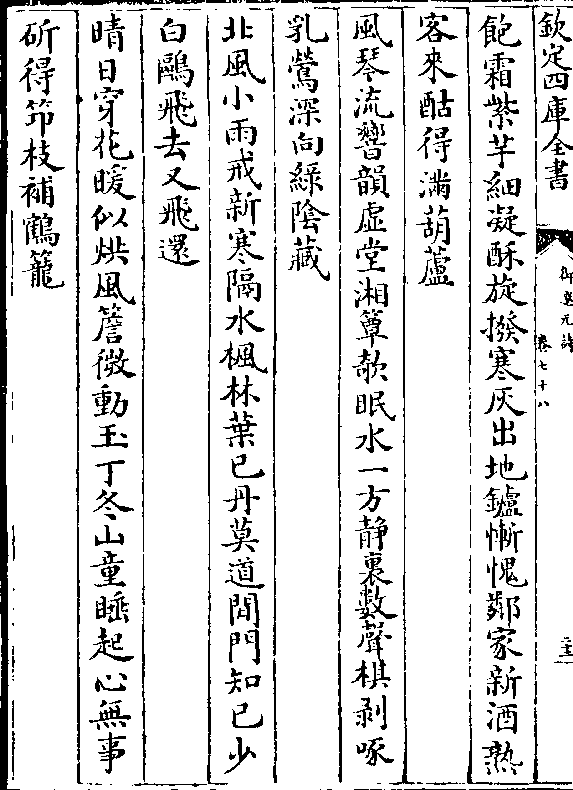 欽定四庫全書
御選元詩
卷七十八
飽霜紫芋細凝酥旋撥寒灰出地鑪慚愧鄰家新酒熟
客來酤得滿葫蘆
風琴流響韻虛堂湘簟欹眠水一方静裏數聲棋剥啄
乳鶯深向緑陰藏
北風小雨戒新寒隔水楓林葉已丹莫道閒門知已少
白鷗飛去又飛還
晴日穿花暖似烘風簷微動玉丁冬山童睡起心無事
斫得笻枝補鶴籠